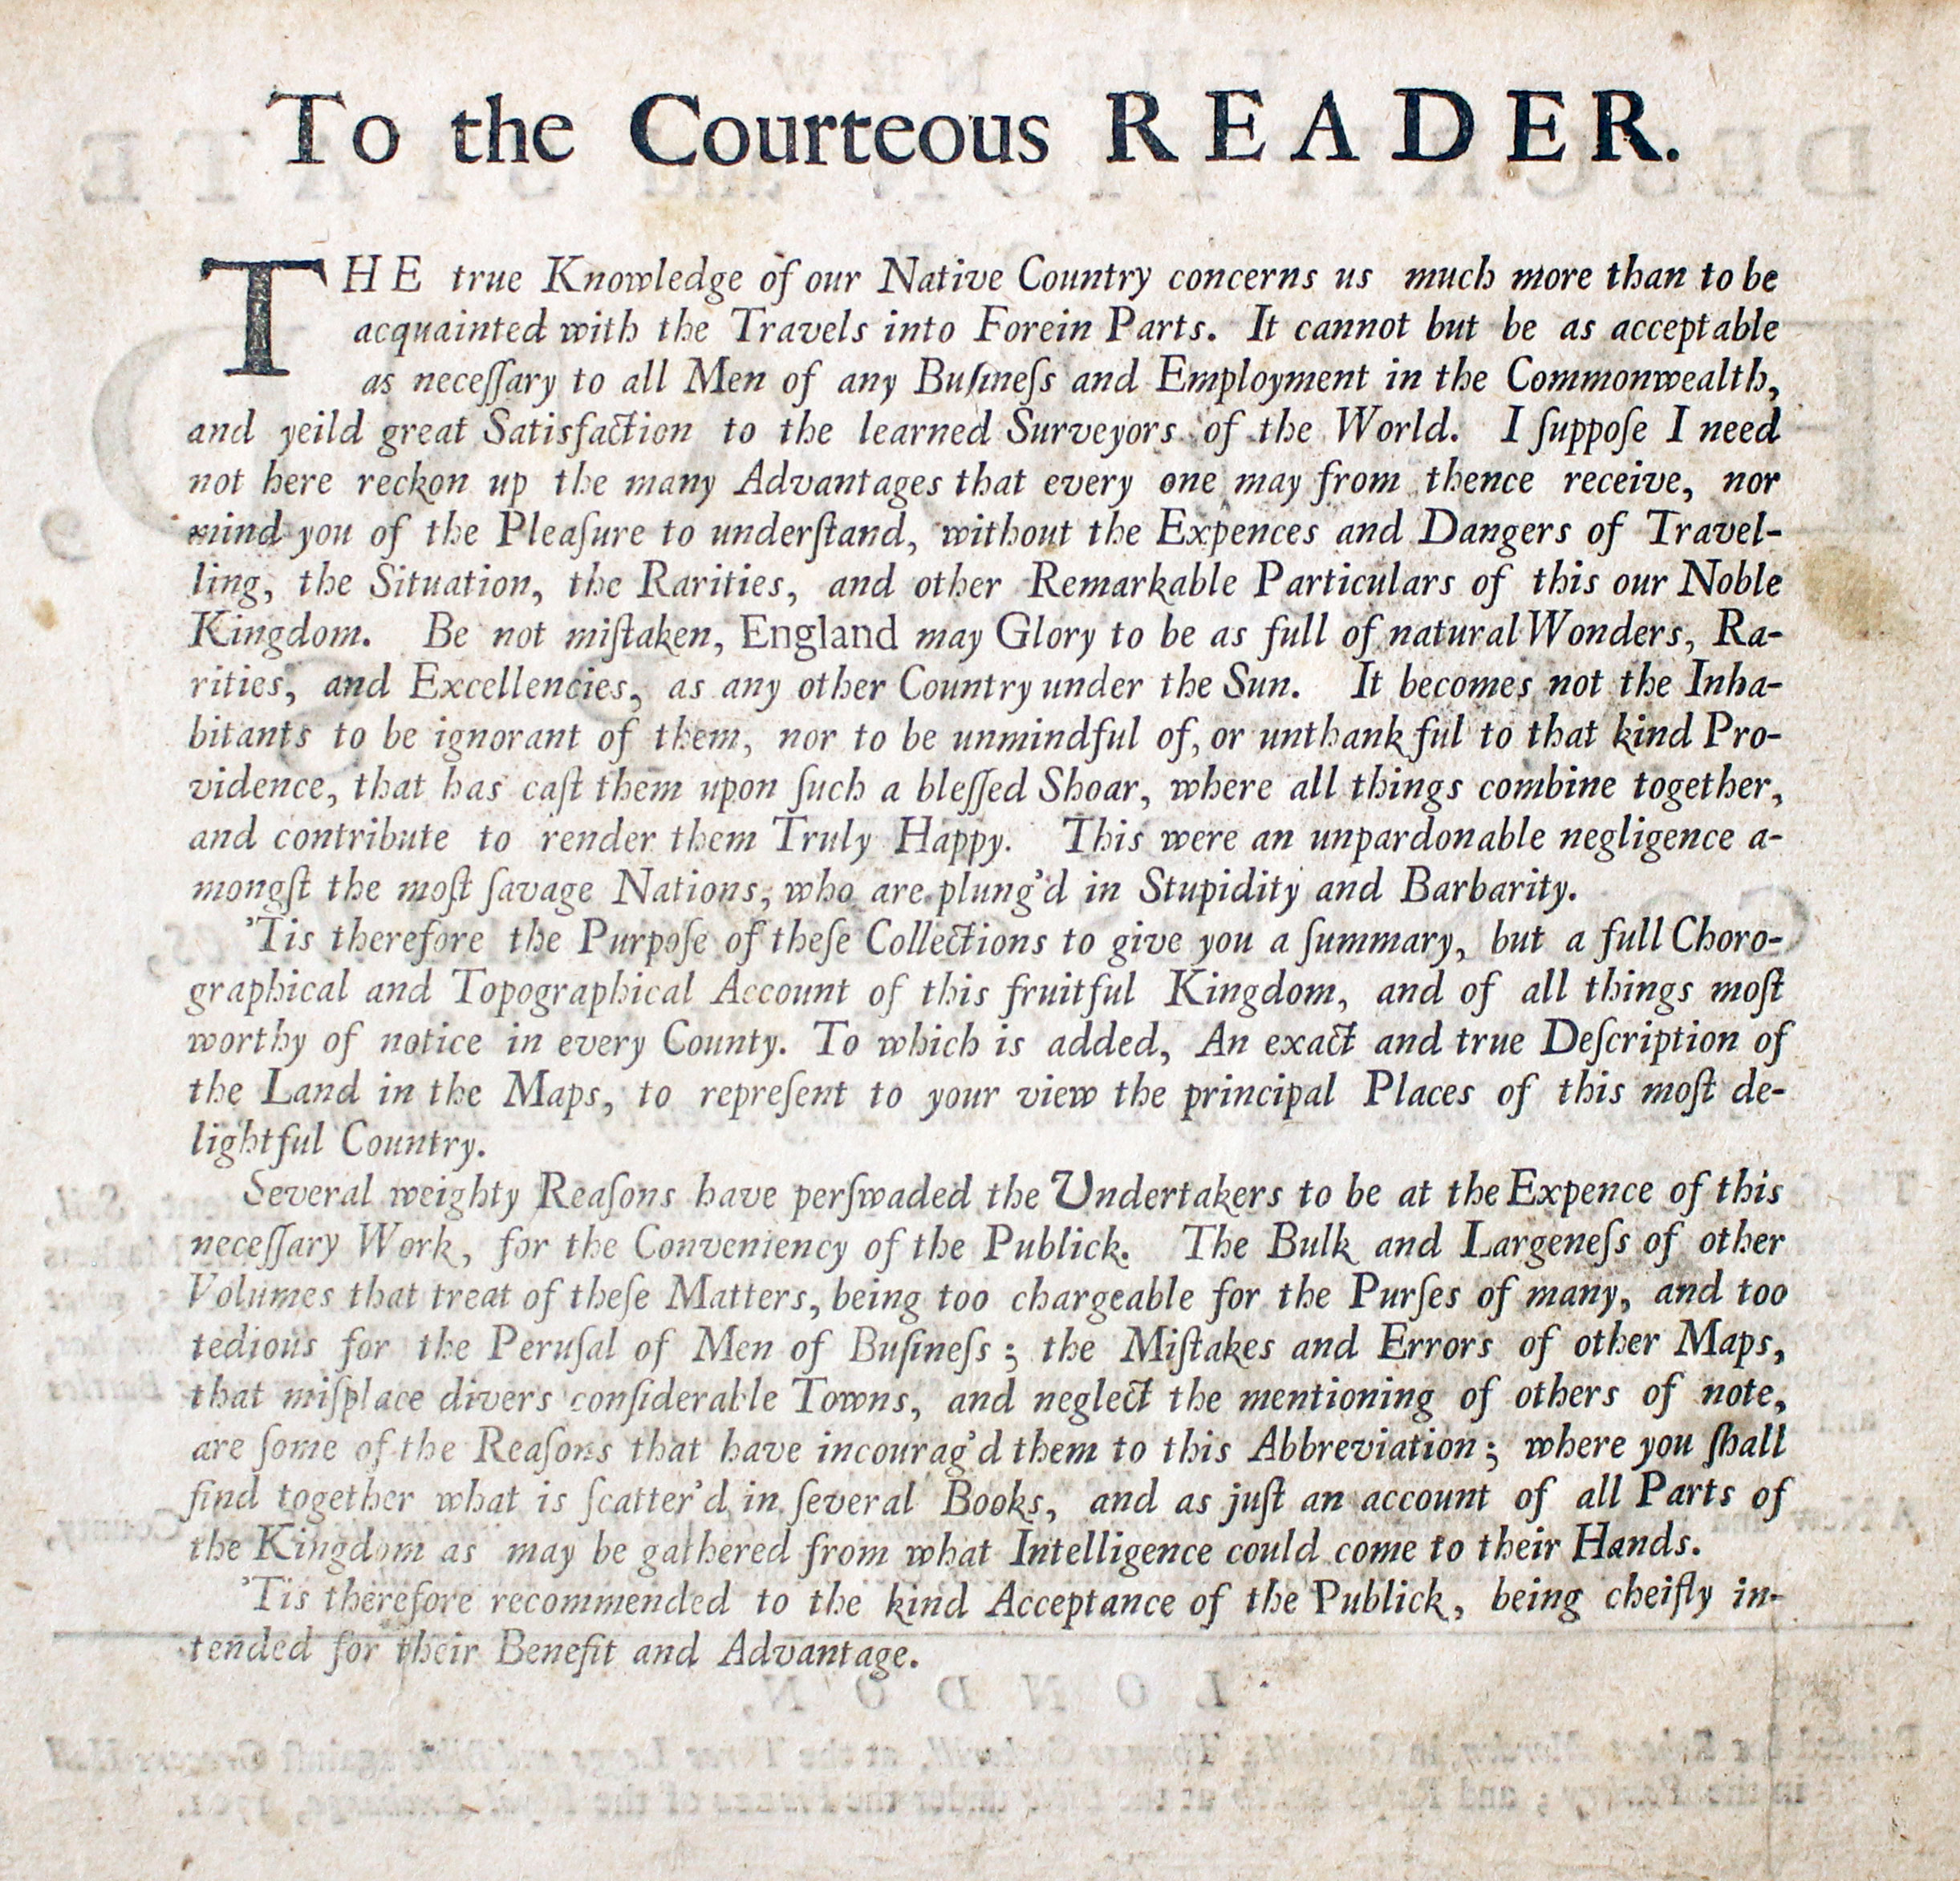 To the Courteous READER.
THE true Knowledge of our Native Country concerns us much more than to be
acquainted with the Travels into Forein Parts. It cannot but be as acceptable
as neceſſary to all Men of any Buſineſs and Employment in the Commonwealth,
and yeild great Satisfaction to the learned Surveyors of the World. I ſuppoſe I need
not here reckon up the many Advantages that every one may from thence receive, nor
mind you of the Pleaſure to underſtand, without the Expences and Dangers of Travel-
ling, the Situation, the Rarities, and other Remarkable Particulars of this our Noble
Kingdom. Be not miſtaken, England may Glory to be as full of natural Wonders, Ra-
rities, and Excellencies, as any other Country under the Sun. It becomes not the Inha-
bitants to be ignorant of them, nor to be unmindful of, or unthankful to that kind Pro-
vidence, that has caſt them upon ſuch a bleſſed Shoar, where all things combine together,
and contribute to render them Truly Happy. This were an unpardonable negligence a-
mongſt the moſt ſavage Nations, who are plung'd in Stupidity and Barbarity.
'Tis therefore the Purpoſe of theſe Collections to give you a ſummary, but a full Choro-
graphical and Topographical Account of this fruitful Kingdom, and of all things moſt
worthy of notice in every County. To which is added, An exact and true Deſcription of
the Land in the Maps, to repreſent to your view the principal Places of this moſt de-
lightful Country.
Several weighty Reaſons have perſwaded the Undertakers to be at the Expence of this
neceſſary Work, for the Conveniency of the Publick. The Bulk and Largeneſs of other
Volumes that treat of theſe Matters, being too chargeable for the Purſes of many, and too
tedious for the Peruſal of Men of Buſineſs; the Miſtakes and Errors of other Maps,
that miſplace divers conſiderable Towns, and neglect the mentioning of others of note,
are ſome of the Reaſons that have incourag'd them to this Abbreviation; where you ſhall
find together what is ſcatter'd in ſeveral Books, and as juſt an account of all Parts of
the Kingdom as may be gathered from what Intelligence could come to their Hands.
'Tis therefore recommended to the kind Acceptance of the Publick, being cheifly in-
tended for their Benefit and Advantage.